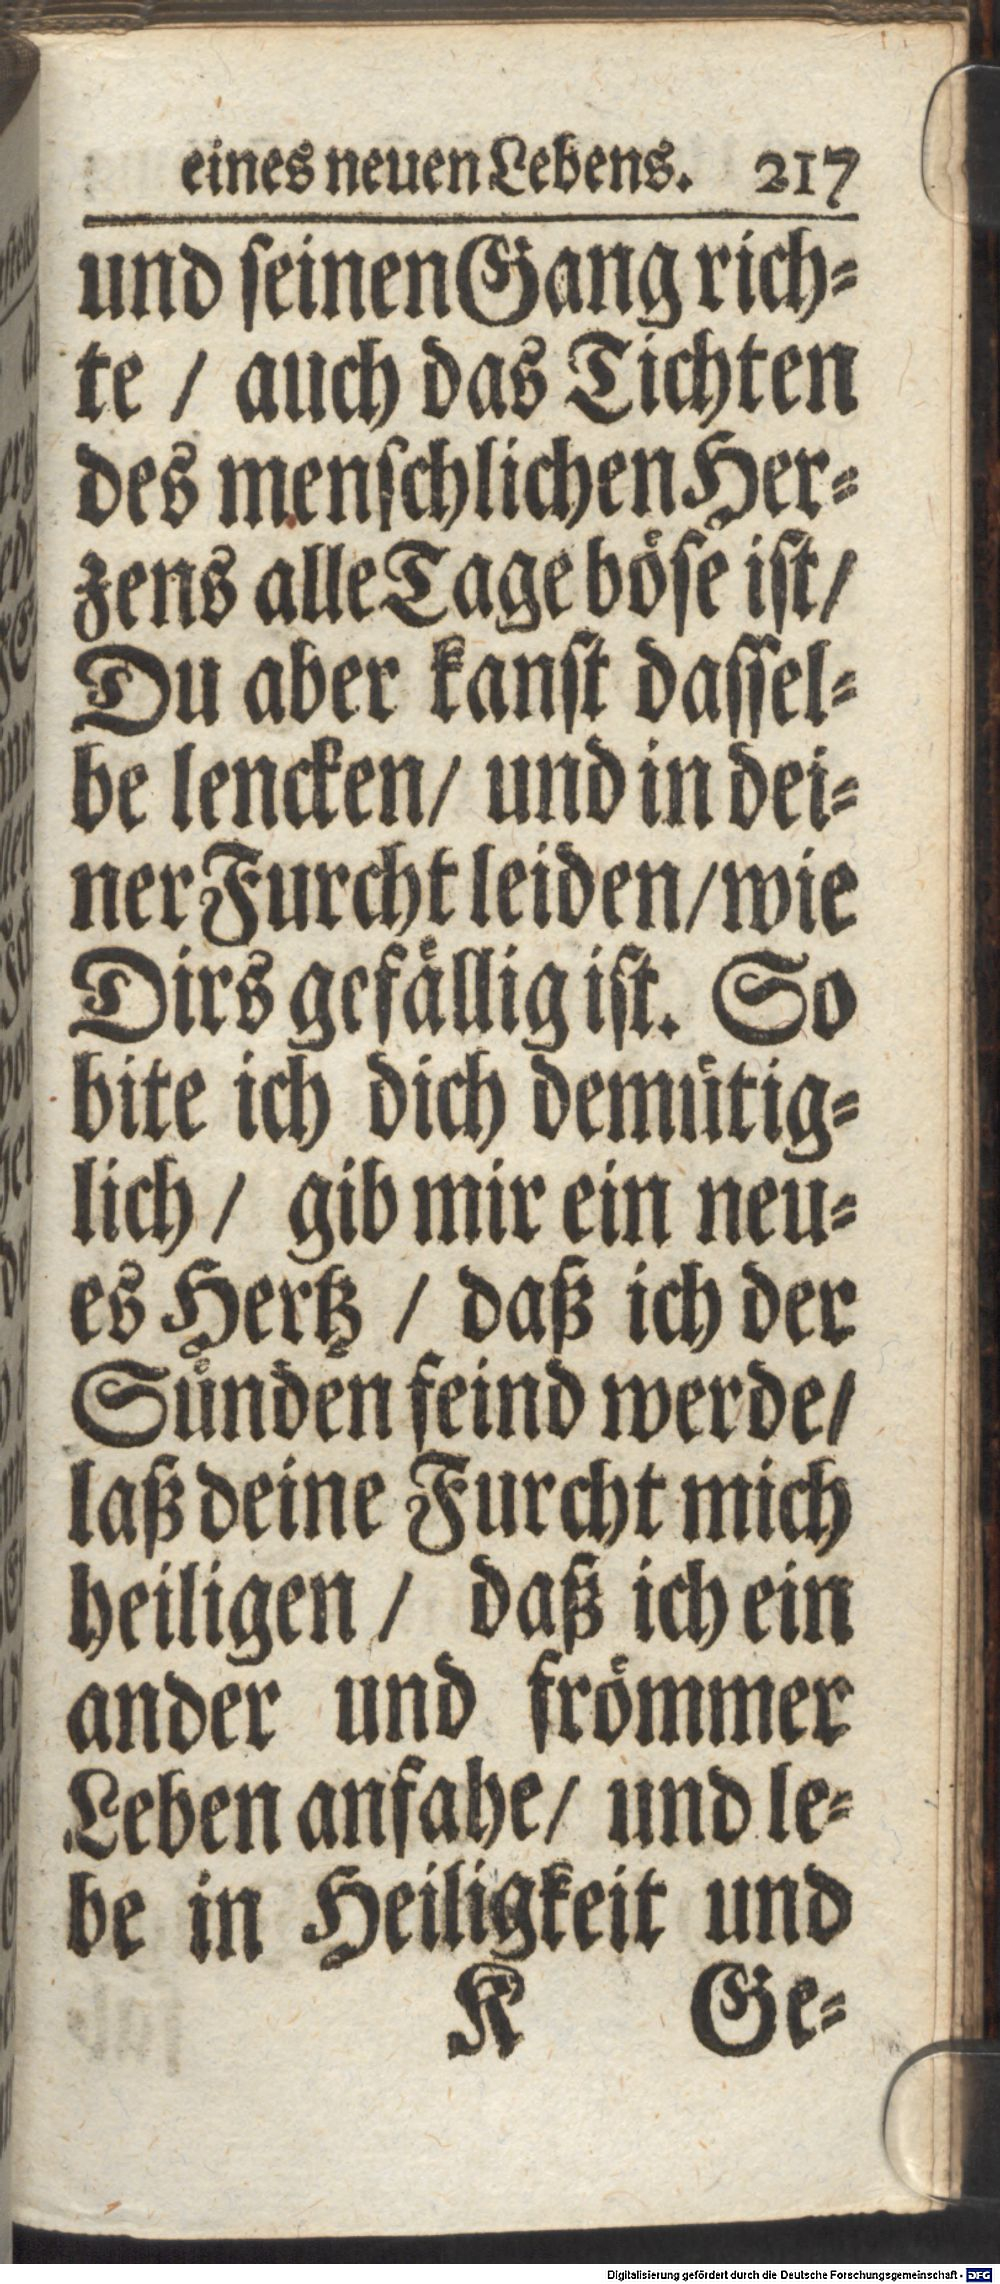 eines neuen Lebens. 217
und seinen Gang rich-
te / auch das Tichten
des menschlichen Her-
zens alle Tage böse ist /
Du aber kanst dassel-
be lencken / und in dei-
ner Furcht leiden / wie
Dirs gefällig ist. So
bite ich dich demütig-
lich / gib mir ein neu-
es Hertz / daß ich der
Sünden feind werde /
laß deine Furcht mich
heiligen / daß ich ein
ander und frömmer
Leben anfahe / und le-
be in Heiligkeit und
K Ge-
Digitalisierung gefördert durch die Deutsche Forschungsgemeinschaft - DFG